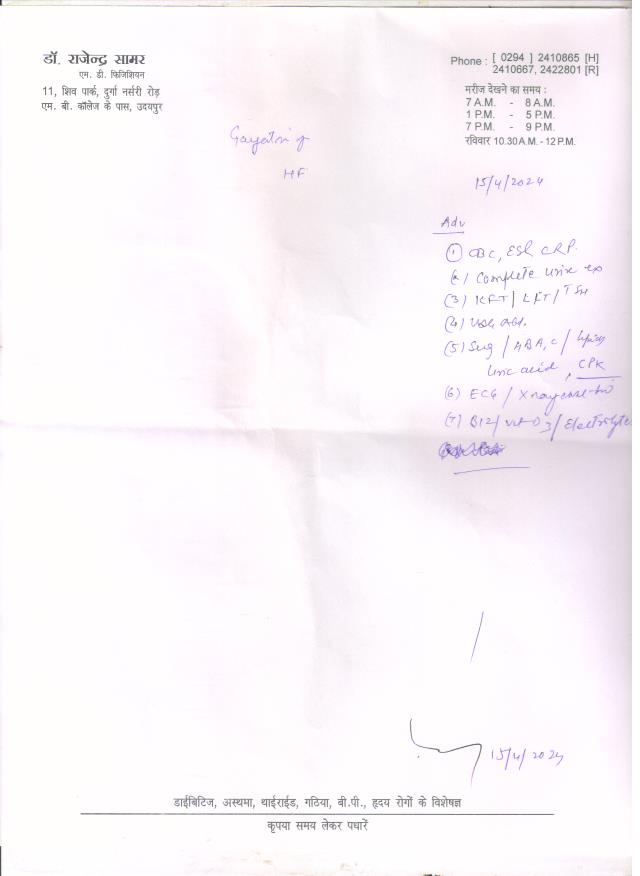 डॉ. राजेन्द्र सामर
एम. डी. फिजिशियन
11, शिव पार्क, दुर्गा नर्सरी रोड़
एम. बी. कॉलेज के पास, उदयपुर
Phone : [ 0294 ] 2410865 [H]
2410667, 2422801 [R]
मरीज देखने का समय :
7 A.M. - 8 A.M.
1 P.M. - 5 P.M.
7 P.M. - 9 P.M.
रविवार 10.30 A.M. - 12 P.M.
Gayatri
HF
15/4/2024
Adv
(1) CBC, ESR CRP.
(2) Complete Urine ex
(3) KFT / LFT / TSH
(4) USG Abd.
(5) Sug /
Uric acid, CPK
(6) ECG / X ray
(7) B12 / vit D3 / Electrolytes
15/4/2024
डाईबिटिज, अस्थमा, थाईराईड, गठिया, बी.पी., हृदय रोगों के विशेषज्ञ
कृपया समय लेकर पधारें